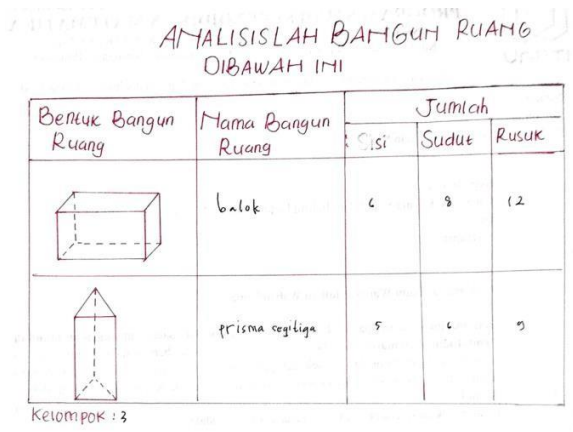 ANALISISLAH BANGUN RUANG
DIBAWAH INI
Bentuk Bangun Ruang
Nama Bangun Ruang
Jumlah
Sisi
Sudut
Rusuk
balok
6
8
12
prisma segitiga
5
6
9
Kelompok : 3